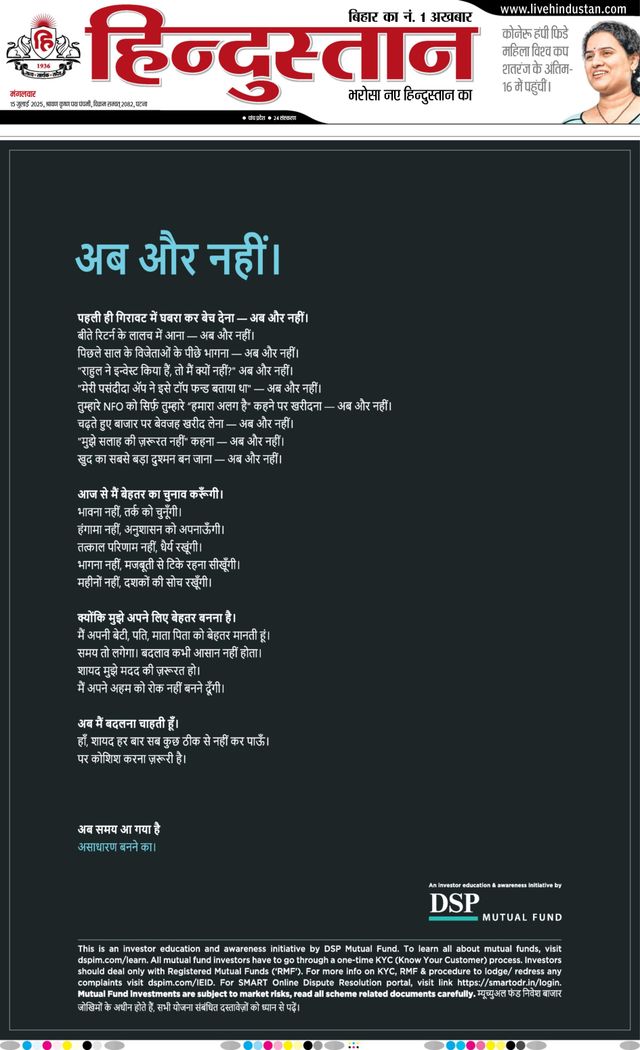 www.livehindustan.com
बिहार का नं. 1 अखबार
हिन्दुस्तान
भरोसा नए हिन्दुस्तान का
हि
1936
मंगलवार
15 जुलाई 2025, श्रावण कृष्ण पक्ष पंचमी, विक्रम सम्वत् 2082, पटना
● पांच प्रदेश ● 24 संस्करण
कोनेरू हंपी फिडे
महिला विश्व कप
शतरंज के अंतिम-
16 में पहुंचीं।
अब और नहीं।
पहली ही गिरावट में घबरा कर बेच देना — अब और नहीं।
बीते रिटर्न के लालच में आना — अब और नहीं।
पिछले साल के विजेताओं के पीछे भागना — अब और नहीं।
"राहुल ने इन्वेस्ट किया हैं, तो मैं क्यों नहीं?" अब और नहीं।
"मेरी पसंदीदा ॲप ने इसे टॉप फन्ड बताया था" — अब और नहीं।
तुम्हारे NFO को सिर्फ़ तुम्हारे "हमारा अलग है" कहने पर खरीदना — अब और नहीं।
चढ़ते हुए बाजार पर बेवजह खरीद लेना — अब और नहीं।
"मुझे सलाह की ज़रूरत नहीं" कहना — अब और नहीं।
खुद का सबसे बड़ा दुश्मन बन जाना — अब और नहीं।
आज से मैं बेहतर का चुनाव करूँगी।
भावना नहीं, तर्क को चुनूँगी।
हंगामा नहीं, अनुशासन को अपनाऊँगी।
तत्काल परिणाम नहीं, धैर्य रखूंगी।
भागना नहीं, मजबूती से टिके रहना सीखूँगी।
महीनों नहीं, दशकों की सोच रखूँगी।
क्योंकि मुझे अपने लिए बेहतर बनना है।
मैं अपनी बेटी, पति, माता पिता को बेहतर मानती हूं।
समय तो लगेगा। बदलाव कभी आसान नहीं होता।
शायद मुझे मदद की ज़रूरत हो।
मैं अपने अहम को रोक नहीं बनने दूँगी।
अब मैं बदलना चाहती हूँ।
हाँ, शायद हर बार सब कुछ ठीक से नहीं कर पाऊँ।
पर कोशिश करना ज़रूरी है।
अब समय आ गया है
असाधारण बनने का।
An investor education & awareness initiative by
DSP
MUTUAL FUND
This is an investor education and awareness initiative by DSP Mutual Fund. To learn all about mutual funds, visit
dspim.com/learn. All mutual fund investors have to go through a one-time KYC (Know Your Customer) process. Investors
should deal only with Registered Mutual Funds ('RMF'). For more info on KYC, RMF & procedure to lodge/ redress any
complaints visit dspim.com/IEID. For SMART Online Dispute Resolution portal, visit link https://smartodr.in/login.
Mutual Fund Investments are subject to market risks, read all scheme related documents carefully. म्यूच्युअल फंड निवेश बाजार
जोखिमों के अधीन होते हैं, सभी योजना संबंधित दस्तावेज़ों को ध्यान से पढ़ें।